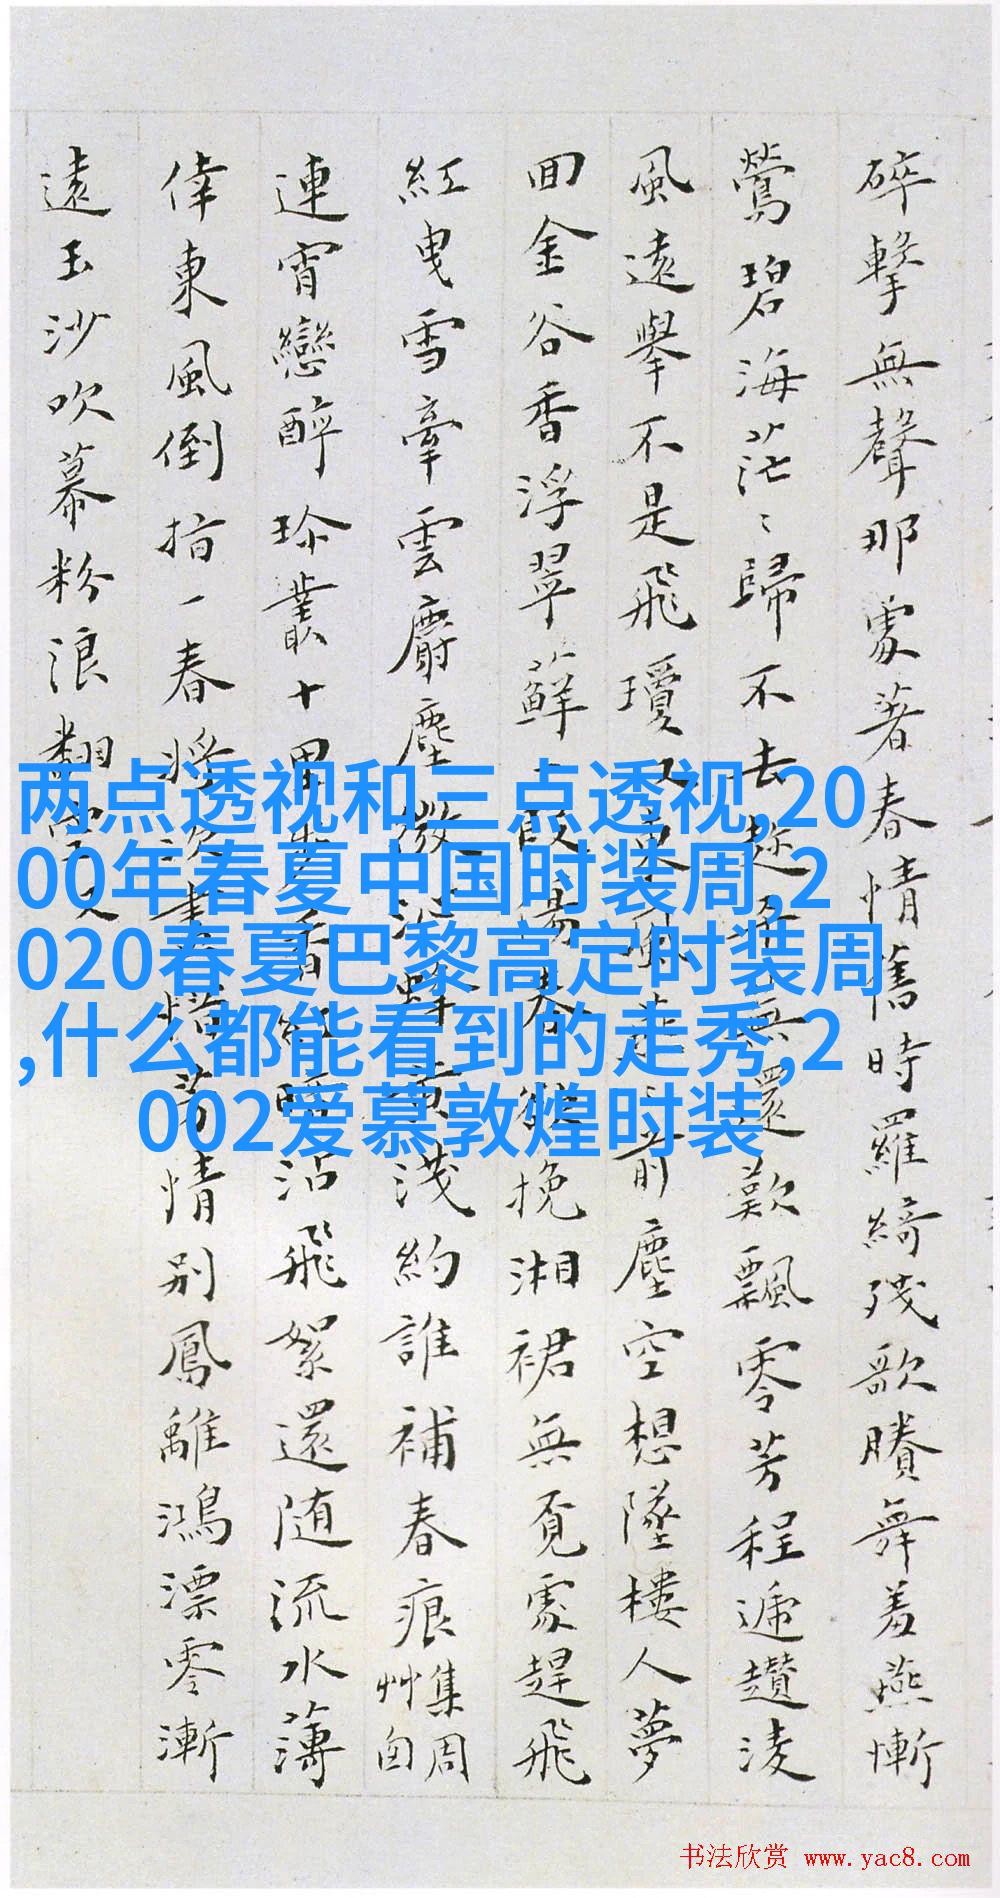 碎擊無聲那處著春情舊時羅綺殘歌賸舞羞燕慚
鶯碧海茫〻歸不去趁無還歎飄零芳程遞趲淩
風遠擧不是飛瓊又前塵空想墜樓人夢
回金谷香浮翠蘚春欲挽湘裙無覓處趕飛
紅曳雪牽雲麝塵微黃淺約誰補春痕集周草窗
連宵戀醉珍叢十里香沾飛絮還隨流水薄
倖東風倒指一春將芳情別鳳離鴻漂零漸
遠玉沙吹幕粉浪翻空又
两点透视和三点透视,20
00年春夏中国时装周,2
020春夏巴黎高定时装周
,什么都能看到的走秀,2
002爱慕敦煌时装
书法欣赏 www.yac8.com